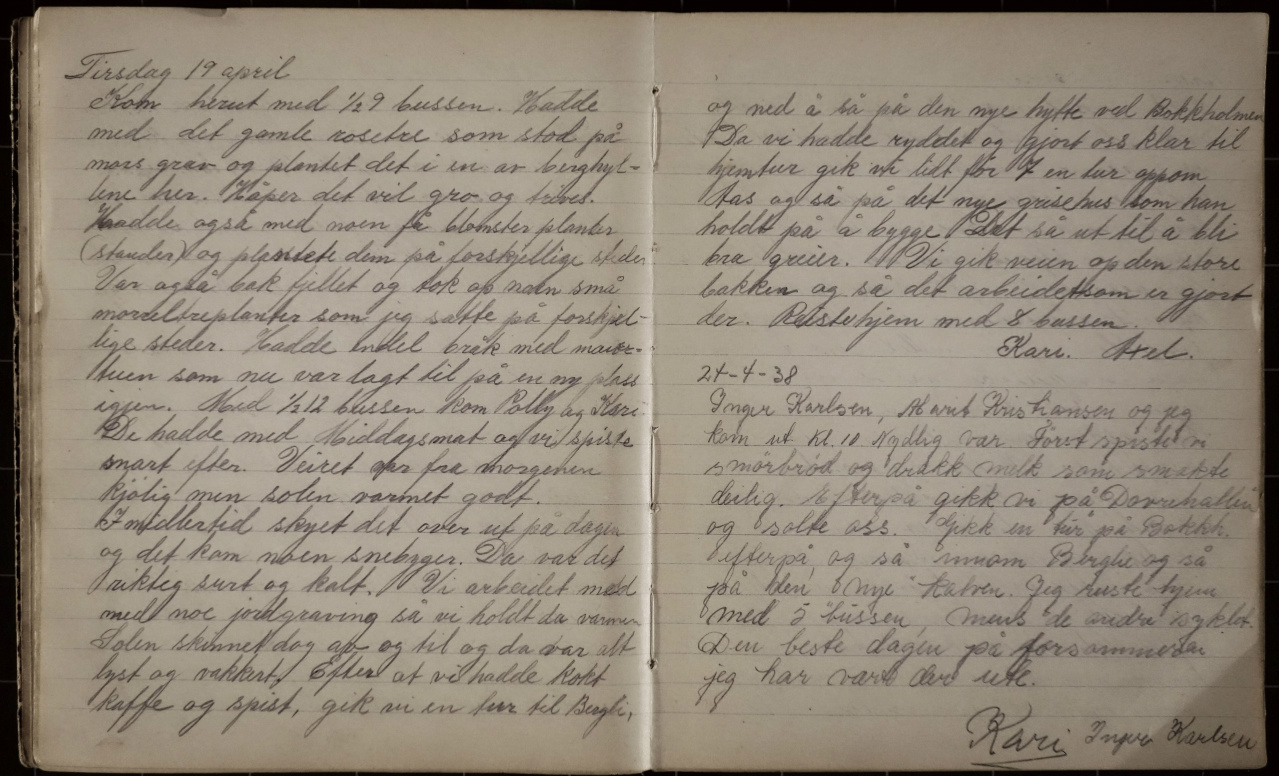 Tirsdag 19 april
Kom herut med 1/2 9 bussen. Hadde
med det gamle rosetre som stod på
mors grav og plantet det i en av berghyl-
lene her. Håper det vil gro og trives.
Hadde også med noen få blomster planter
(stauder) og plantete dem på forskjellige steder
Var også bak fjellet og tok op noen små
morreltreplanter som jeg satte på forskjel-
lige steder. Hadde endel bråk med maur-
tuen som nu var lagt til på en ny plass
igjen. Med 1/2 12 bussen kom Polly og Kari
De hadde med Middagsmat og vi spiste
snart efter. Veiret var fra morgenen
kjølig men solen varmet godt.
Imidlertid skyet det over ut på dagen
og det kom noen snebyger. Da var det
riktig surt og kalt. Vi arbeidet med
med noe jordgraving så vi holdt da varmen
Solen skinnet dog av og til og da var alt
lyst og vakkert. Efter at vi hadde kokt
kaffe og spist, gik vi en tur til Bergli,
og ned å så på den nye hytte ved Bokkholmen
Da vi hadde ryddet og gjort oss klar til
hjemtur gik vi litt før 7 en tur oppom
Aas og så på det nye grisehus som han
holdt på å bygge. Det så ut til å bli
bra greier. Vi gik veien op den store
bakken og så det arbeidet som er gjort
der. Reiste hjem med 8 bussen.
Kari. Axel.
24-4-38
Inger Karlsen, Marit Kristiansen og jeg
kom ut kl. 10 Nydlig var. Først spiste vi
smörbröd og drakk melk som smakte
deilig. Efterpå gikk vi på Dovrehallen
og solte oss. Gikk en tur på Bokkh.
efterpå, og så innom Berghe og så
på den "nye" Katven. Jeg reiste hjem
med 5 bussen, mens de andre syklet.
Den beste dagen på forsommeren
jeg har vært der ute.
Kari Inger Karlsen